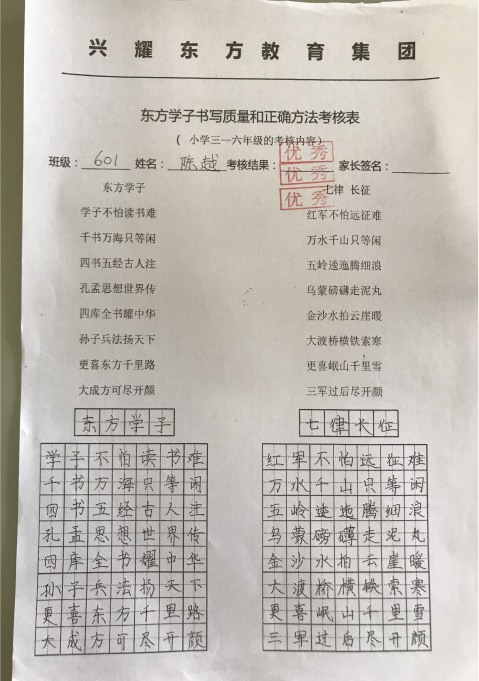 兴耀东方教育集团
东方学子书写质量和正确方法考核表
（ 小学三—六年级的考核内容）
班级：601 姓名：陈越 考核结果： 家长签名：
优秀
优秀
优秀
东方学子
学子不怕读书难
千书万海只等闲
四书五经古人注
孔孟思想世界传
四库全书耀中华
孙子兵法扬天下
更喜东方千里路
大成方可尽开颜
七律 长征
红军不怕远征难
万水千山只等闲
五岭逶迤腾细浪
乌蒙磅礴走泥丸
金沙水拍云崖暖
大渡桥横铁索寒
更喜岷山千里雪
三军过后尽开颜
东方学子
学子不怕读书难
千书万海只等闲
四书五经古人注
孔孟思想世界传
四库全书耀中华
孙子兵法扬天下
更喜东方千里路
大成方可尽开颜
七律长征
红军不怕远征难
万水千山只等闲
五岭逶迤腾细浪
乌蒙磅礴走泥丸
金沙水拍云崖暖
大渡桥横铁索寒
更喜岷山千里雪
三军过后尽开颜